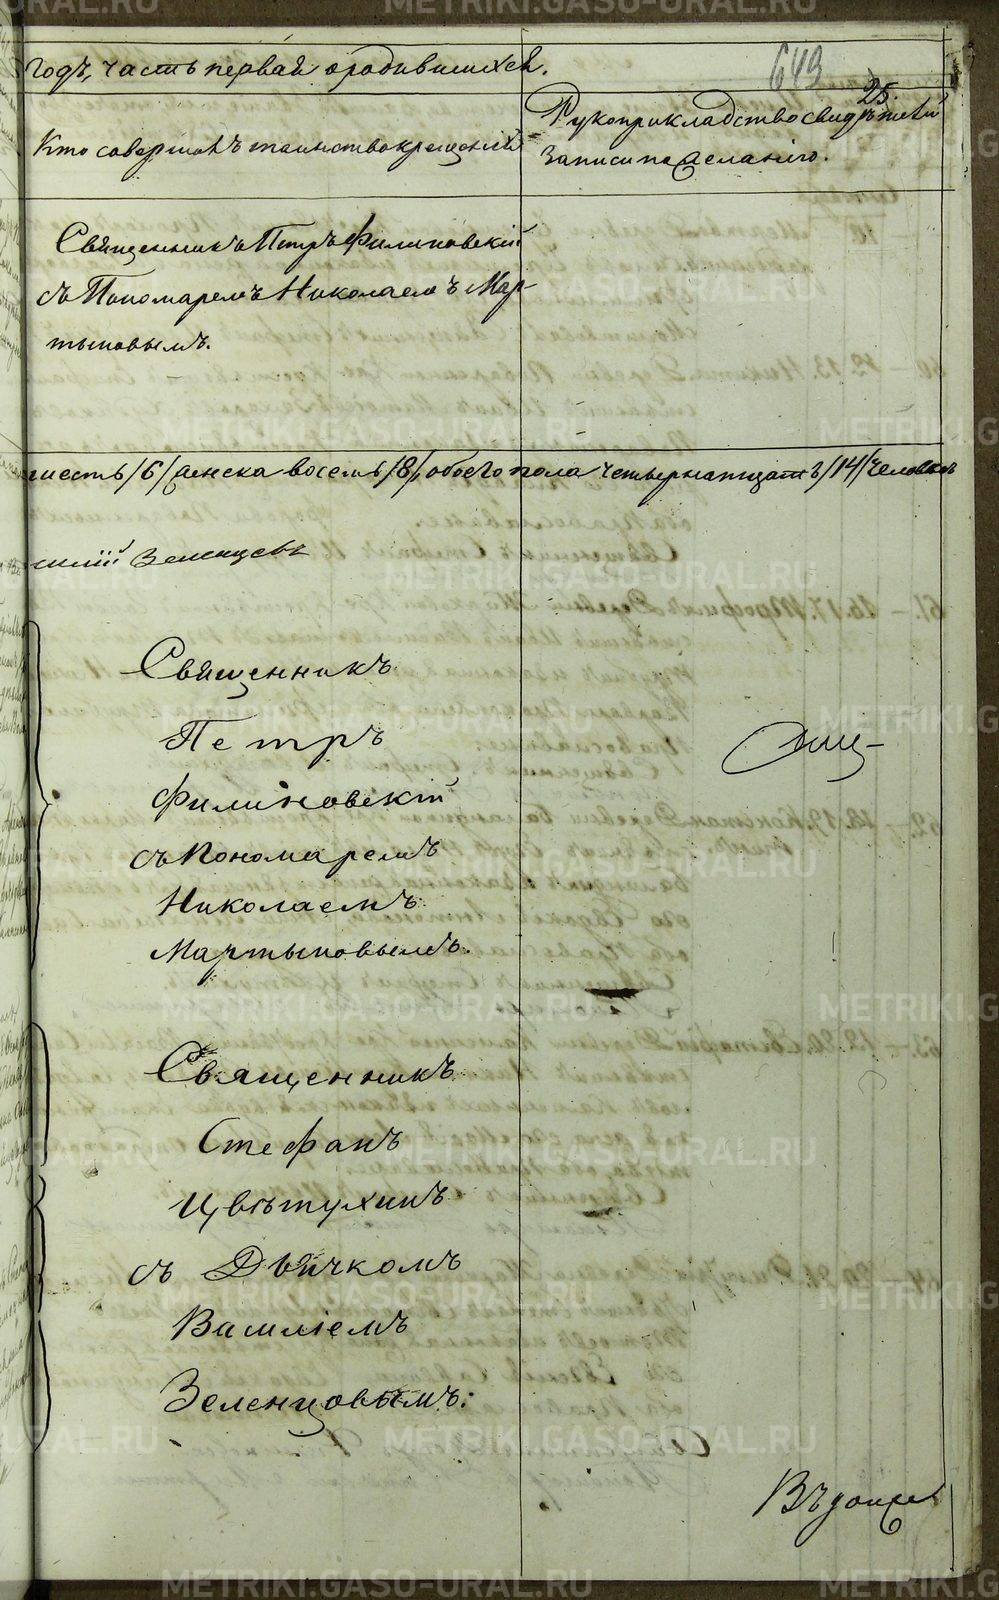 годъ, часть первая о родившихся.
649
25
Кто совершалъ таинство крещенія
Рукоприкладство свидѣтелей
записи по желанію.
Священникъ Петръ Филиновскій
съ Пономаремъ Николаемъ Мар-
тыновымъ.
шесть /6/ женска восемь /8/, обоего пола четырнатцать /14/ человекъ
силій Зеленцовъ
Священникъ
Петръ
Филиновскій
съ Пономаремъ
Николаемъ
Мартыновымъ.
Священникъ
Стефанъ
Цвѣтухинъ
съ Дьячкомъ
Василіемъ
Зеленцовымъ:
METRIKI.GASO-URAL.RU